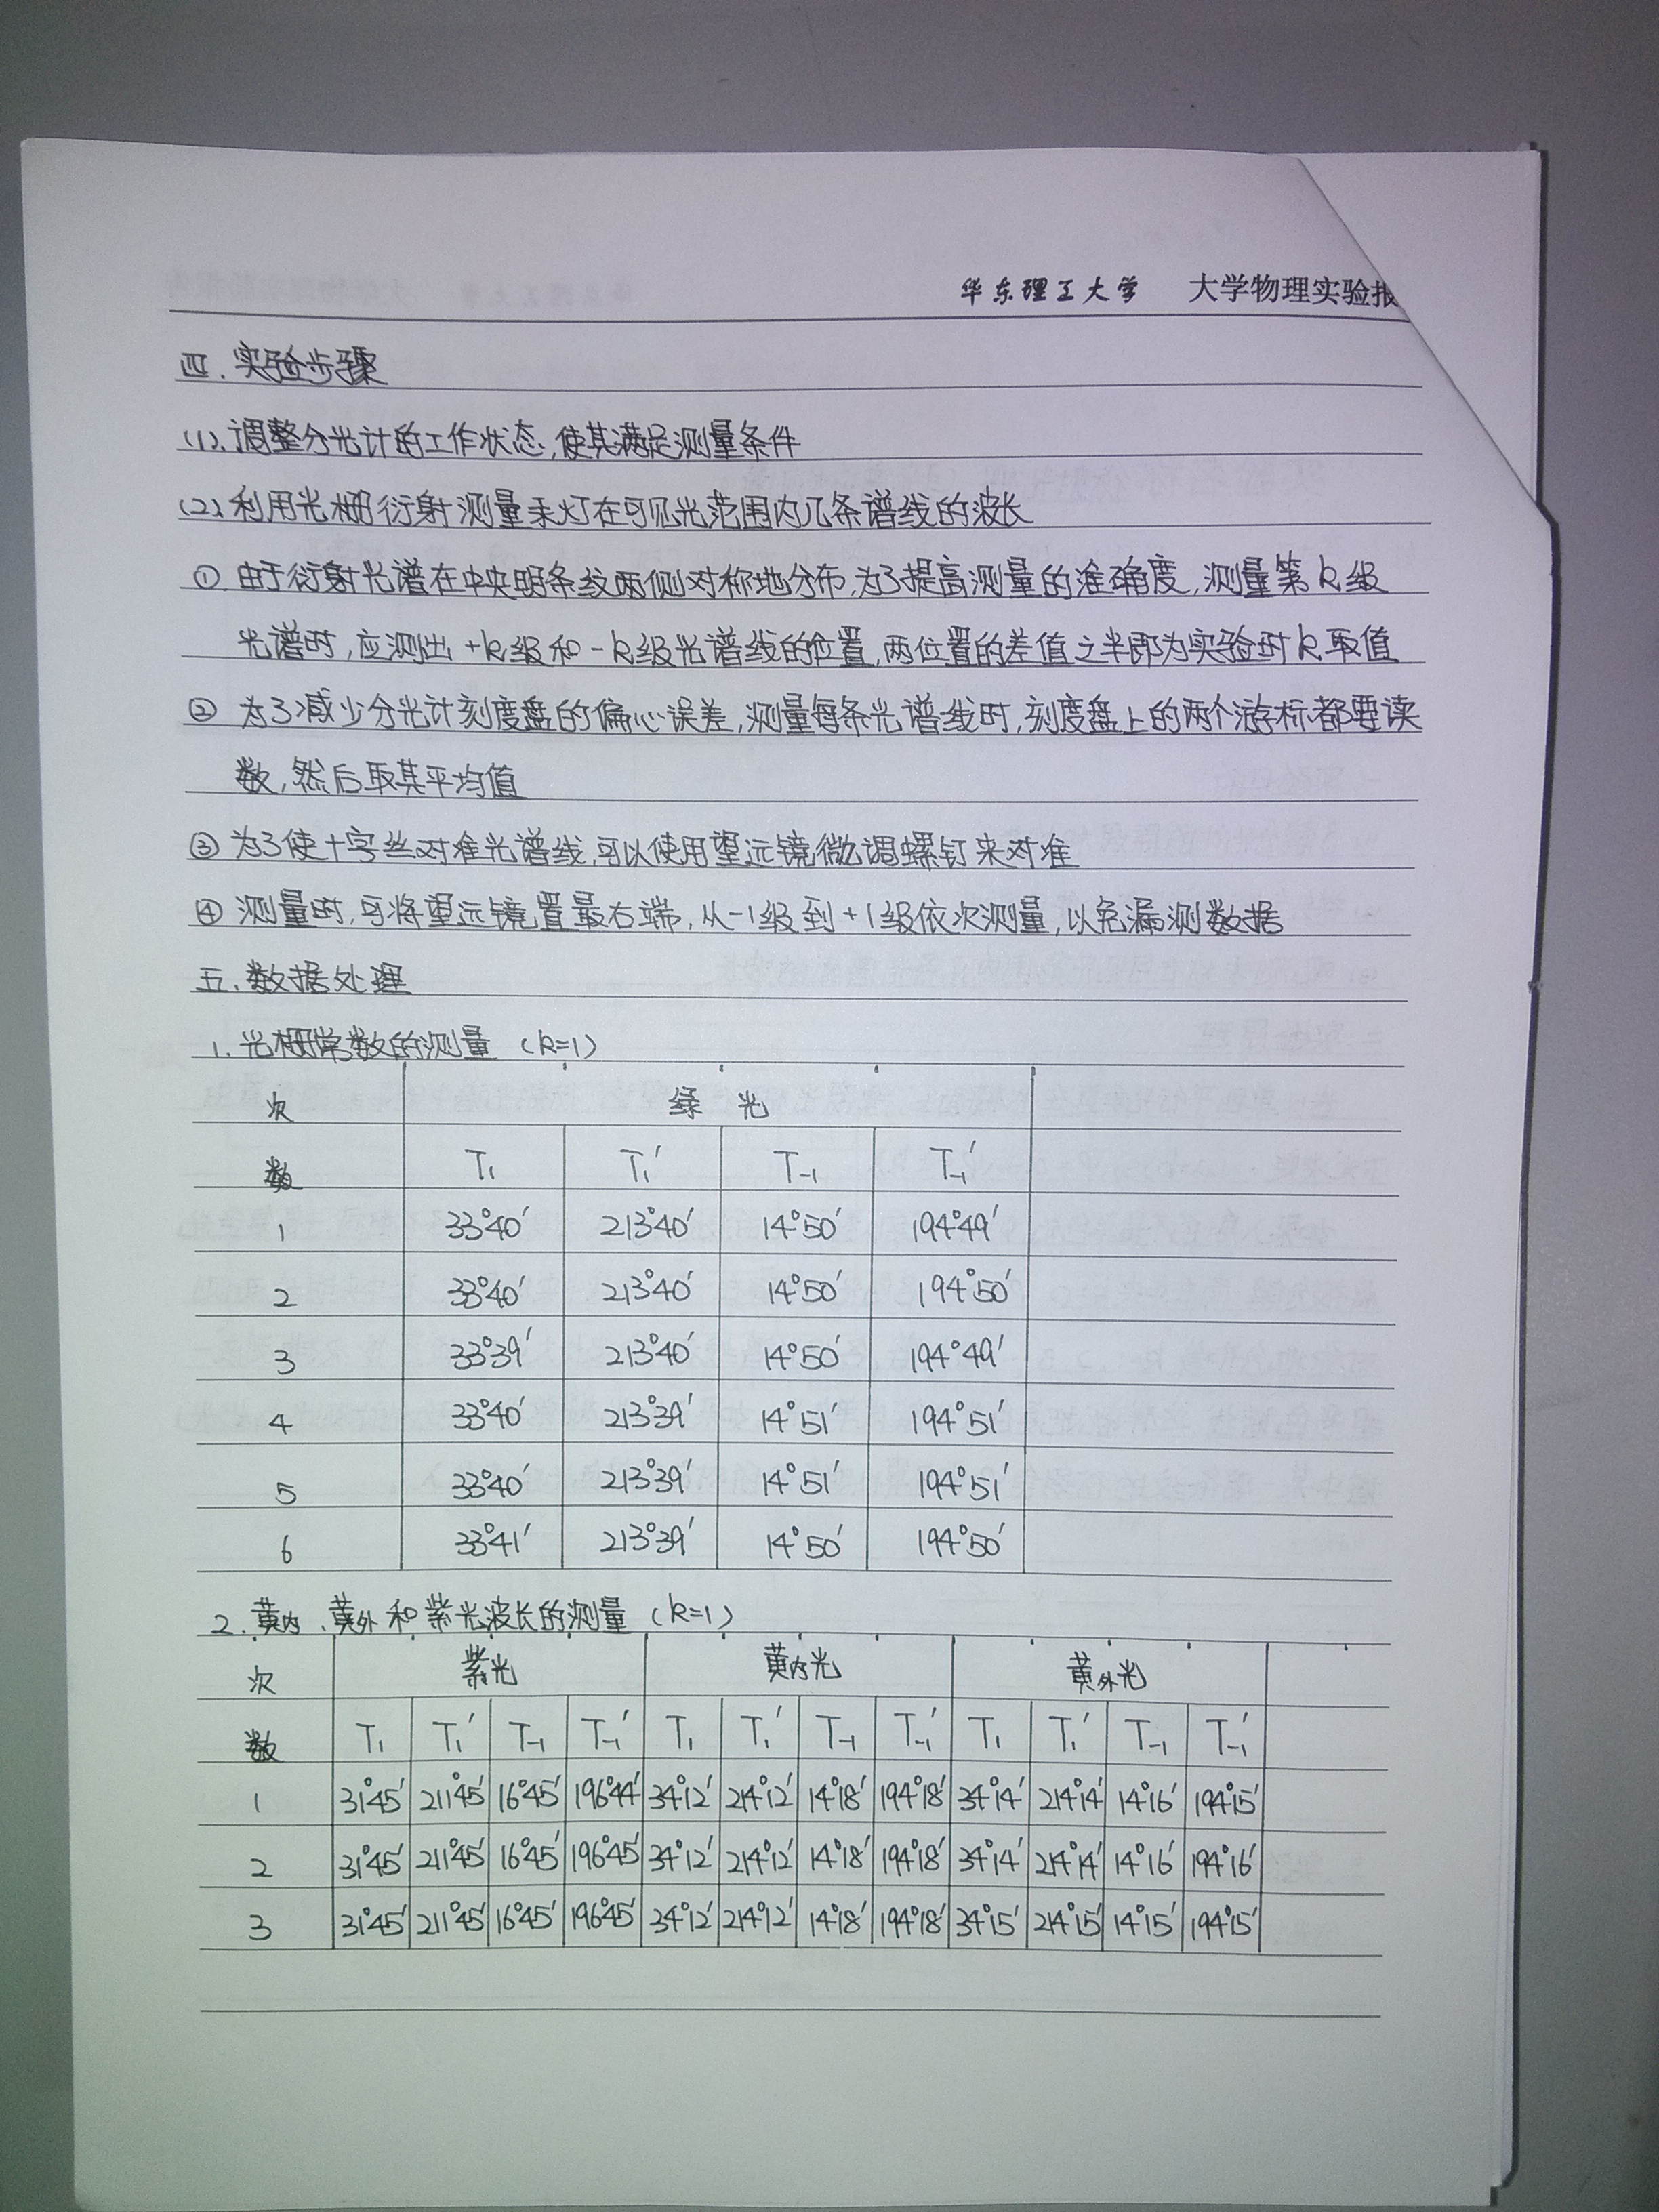 华东理工大学 大学物理实验报
四. 实验步骤
(1). 调整分光计的工作状态, 使其满足测量条件
(2) 利用光栅衍射测量汞灯在可见光范围内几条谱线的波长
① 由于衍射光谱在中央明条纹两侧对称地分布, 为了提高测量的准确度, 测量第k级
光谱时, 应测出+k级和-k级光谱线的位置, 两位置的差值之半即为实验时k取值
② 为了减少分光计刻度盘的偏心误差, 测量每条光谱线时, 刻度盘上的两个游标都要读
数, 然后取其平均值
③ 为了使十字丝对准光谱线, 可以使用望远镜微调螺钉来对准
④ 测量时, 可将望远镜置最右端, 从-1级到+1级依次测量, 以免漏测数据
五. 数据处理
1. 光栅常数的测量 (k=1)
次 绿光
数 T₁ T₁′ T₋₁ T₋₁′
1 33°40′ 213°40′ 14°50′ 194°49′
2 33°40′ 213°40′ 14°50′ 194°50′
3 33°39′ 213°40′ 14°50′ 194°49′
4 33°40′ 213°39′ 14°51′ 194°51′
5 33°40′ 213°39′ 14°51′ 194°51′
6 33°41′ 213°39′ 14°50′ 194°50′
2. 黄内、黄外和紫光波长的测量 (k=1)
次 紫光 黄内光 黄外光
数 T₁ T₁′ T₋₁ T₋₁′ T₁ T₁′ T₋₁ T₋₁′ T₁ T₁′ T₋₁ T₋₁′
1 31°45′ 211°45′ 16°45′ 196°44′ 34°12′ 214°12′ 14°18′ 194°18′ 34°14′ 214°14′ 14°16′ 194°15′
2 31°45′ 211°45′ 16°45′ 196°45′ 34°12′ 214°12′ 14°18′ 194°18′ 34°14′ 214°14′ 14°16′ 194°16′
3 31°45′ 211°45′ 16°45′ 196°45′ 34°12′ 214°12′ 14°18′ 194°18′ 34°15′ 214°15′ 14°15′ 194°15′